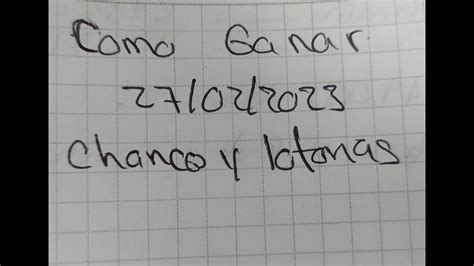 Como Ganar
27/02/2023
Chanco y lotomas